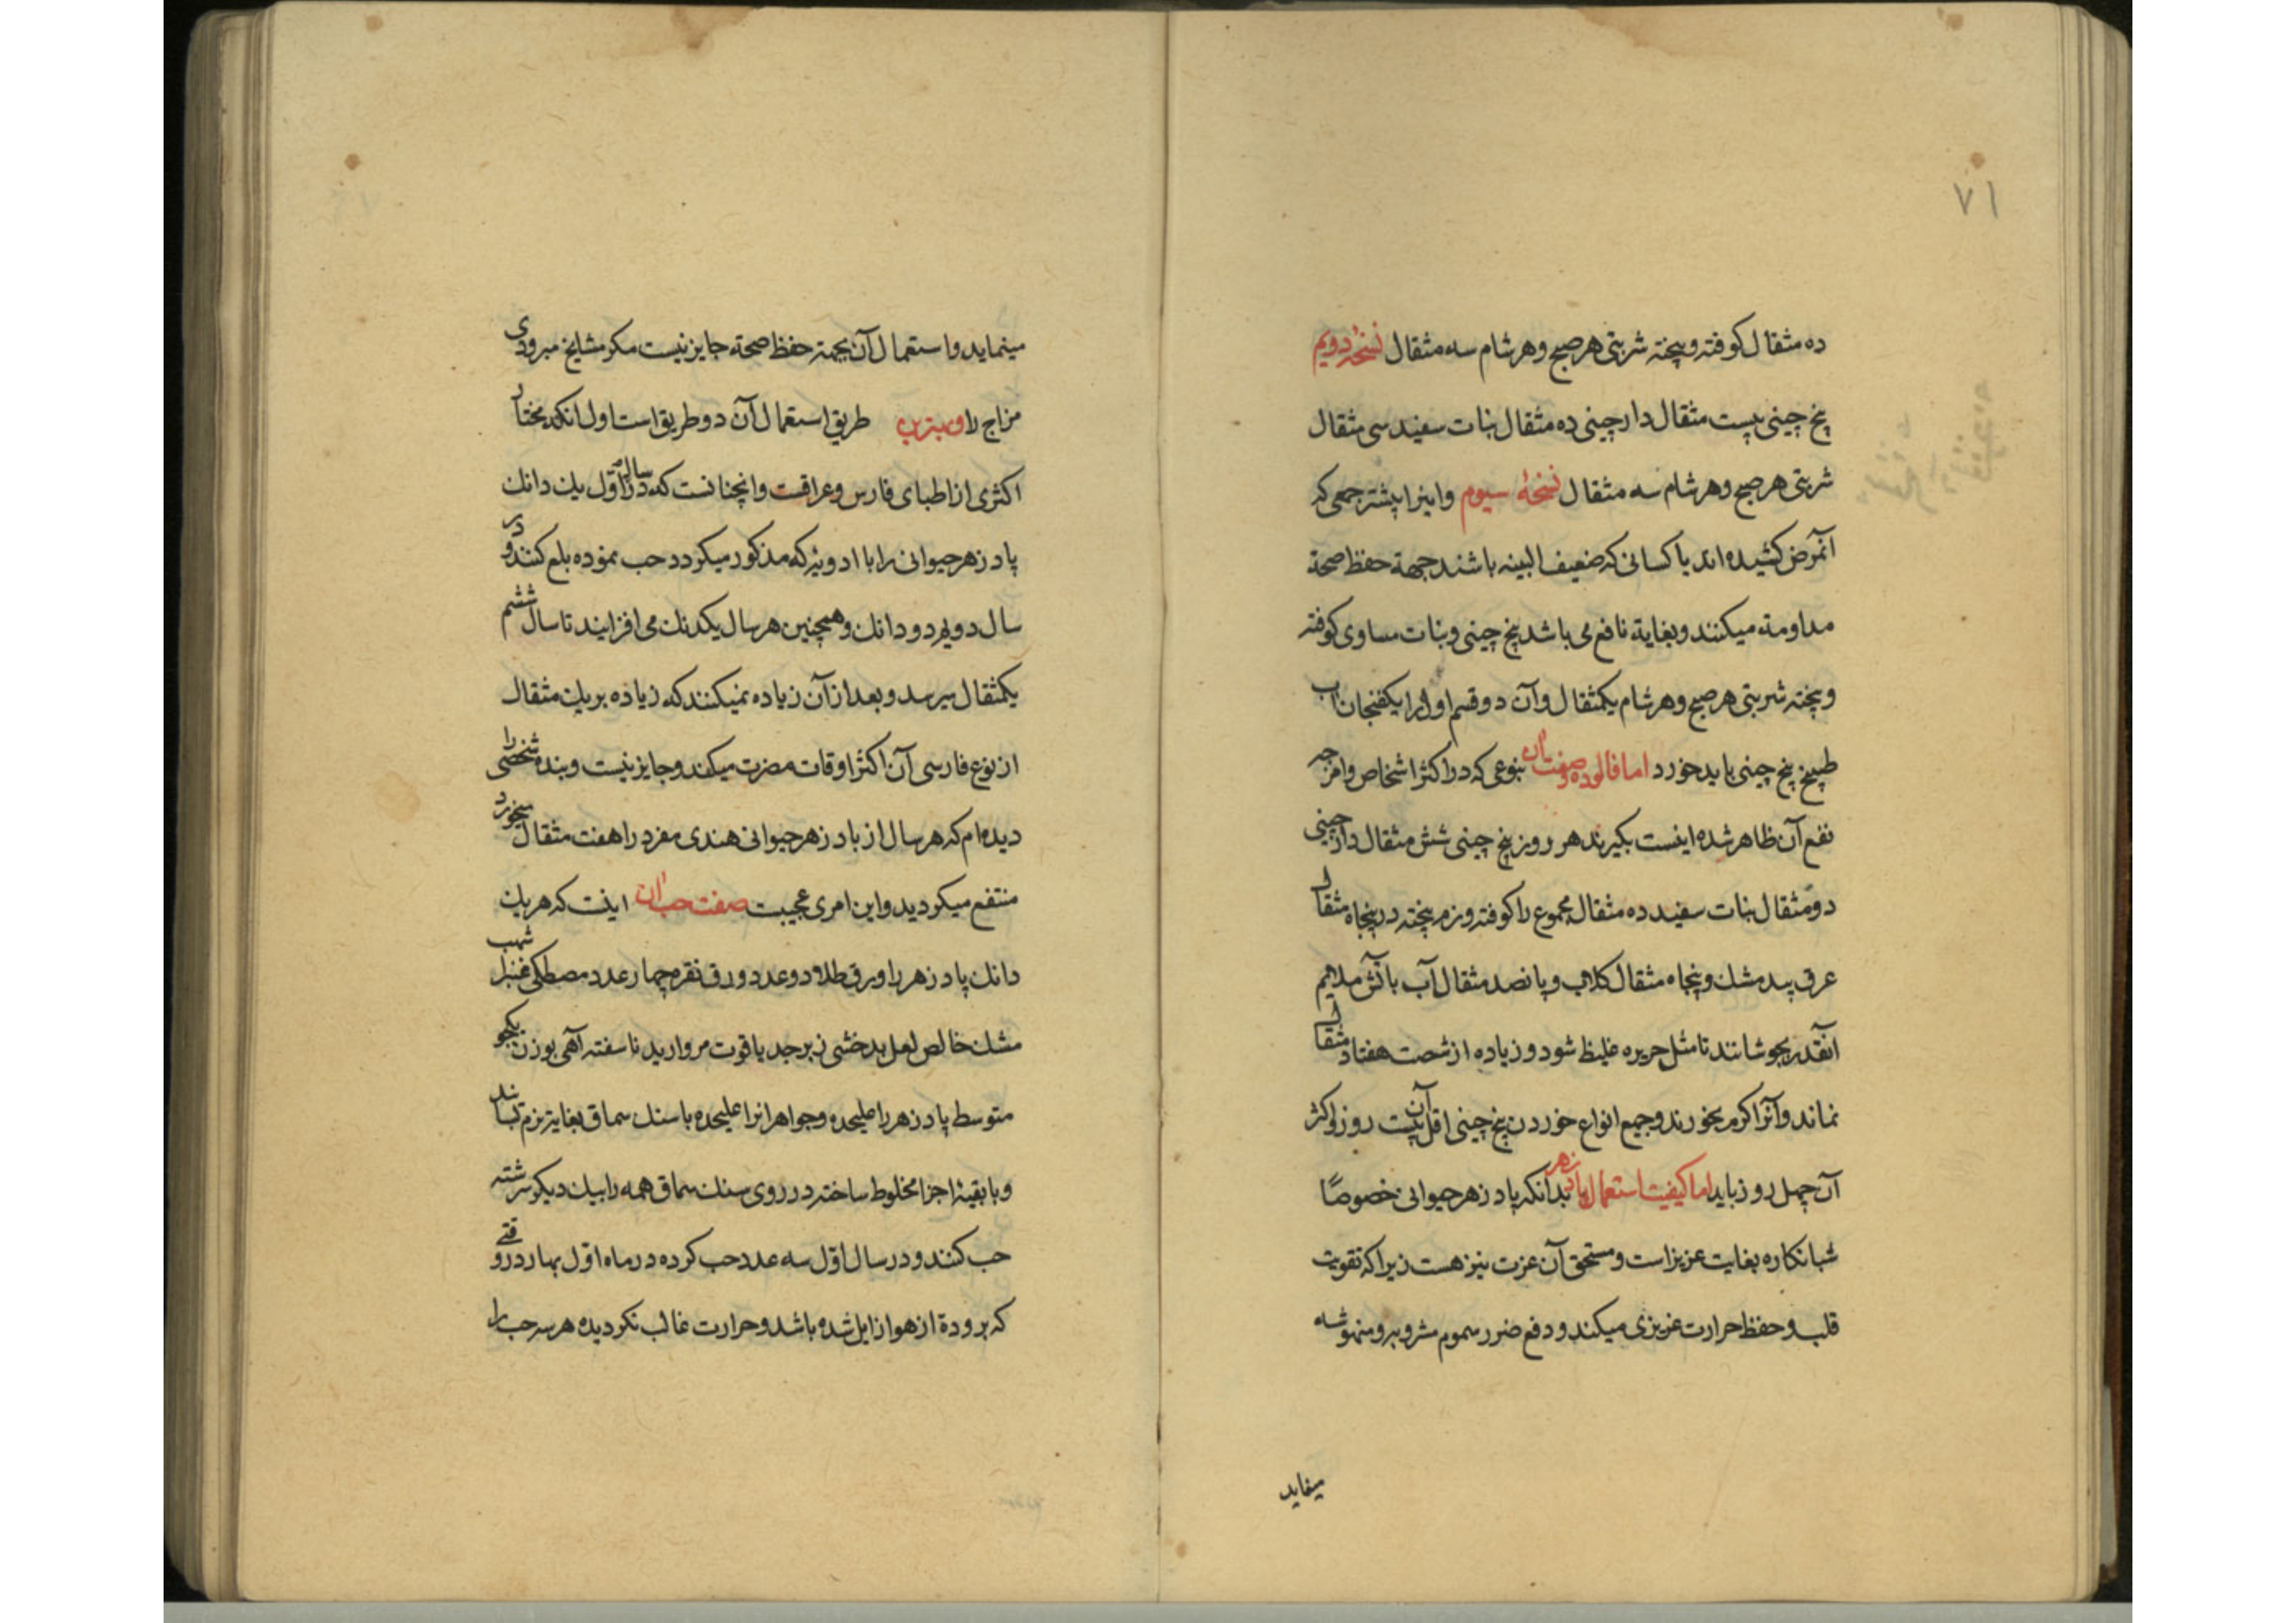 ۷۱
ده مثقال کوفته و بیخته شربتی هر صبح و هر شام سه مثقال نسخهٔ دویم
بیخ چینی بیست مثقال دارچینی ده مثقال نبات سفید سی مثقال
شربتی هر صبح و هر شام سه مثقال نسخهٔ سیوم و اینرا بیشتر جمعی که
آنمرض کشیده اند یا کسانی که ضعیف البینه باشند جهة حفظ صحة
مداومة میکنند و بغایة نافع می باشد بیخ چینی و نبات مساوی کوفته
و بیخته شربتی هر صبح و هر شام یکمثقال و آن دو قسم اول را بیکفنجان آب
طبیخ بیخ چینی باید خورد اما فالوده و صفت آن بنوعی که در اکثر اشخاص و امزجه
نفع آن ظاهر شده اینست بکیرند هر روز بیخ چینی شش مثقال دارچینی
دو مثقال نبات سفید ده مثقال مجموع را کوفته و نرم بیخته در پنجاه مثقال
عرق بید مشک و پنجاه مثقال کلاب و پانصد مثقال آب بآتش ملایم
آنقدر بجوشانند تا مثل حریره غلیظ شود و زیاده از شصت هفتاد مثقال
نماند و آنرا کرم بخورند و جمیع انواع خوردن بیخ چینی اقل آن بیست روز و اکثر
آن چهل روز باید اما کیفیت استعمال پاد زهر بدانکه پاد زهر حیوانی خصوصًا
شبانکاره بغایت عزیز است و مستحق آن عزت نیز هست زیرا که تقویت
قلب و حفظ حرارت غریزی میکند و دفع ضرر سموم مشروبه و منهوشه
مینماید
مینماید و استعمال آن بجهة حفظ صحة جایز نیست مکر مشایخ مبرودی
مزاج را و بهترین طریق استعمال آن دو طریق است اول انکه مختار
اکثری از اطبای فارس و عراقست و انچنانست که در سال اوّل یک دانک
پاد زهر حیوانی را با ادویهٔ که مذکور میکردد حب نموده بلع کنند و در
سال دویم دو دانک و همچنین هر سال یکدنک می افزایند تا سال ششم
یکمثقال میرسد و بعد از آن زیاده نمیکنند که زیاده بر یک مثقال
از نوع فارسی آن اکثر اوقات مضرت میکند و جایز نیست و بنده شخصی را
دیده ام که هر سال از باد زهر حیوانی هندی مفرد را هفت مثقال میخورد
منتفع میکردید و این امری عجیبست صفت حب آن اینست که هر یک
دانک پاد زهر را ورق طلا دو عدد ورق نقره چهار عدد مصطکی عنبر اشهب
مشک خالص لعل بدخشی زبرجد یاقوت مروارید ناسفته آهی بوزن یکجو
متوسط پاد زهر را علیحده و جواهر انرا علیحده با سنک سماق بغایة نرم بسایند
و با بقیهٔ اجزا مخلوط ساخته در روی سنک سماق همه را بیک دیکر سرشته
حب کنند و در سال اوّل سه عدد حب کرده در ماه اوّل بهار در وقتی
که برودة از هوا زایل شده باشد و حرارت غالب نکردیده هر سه حب را